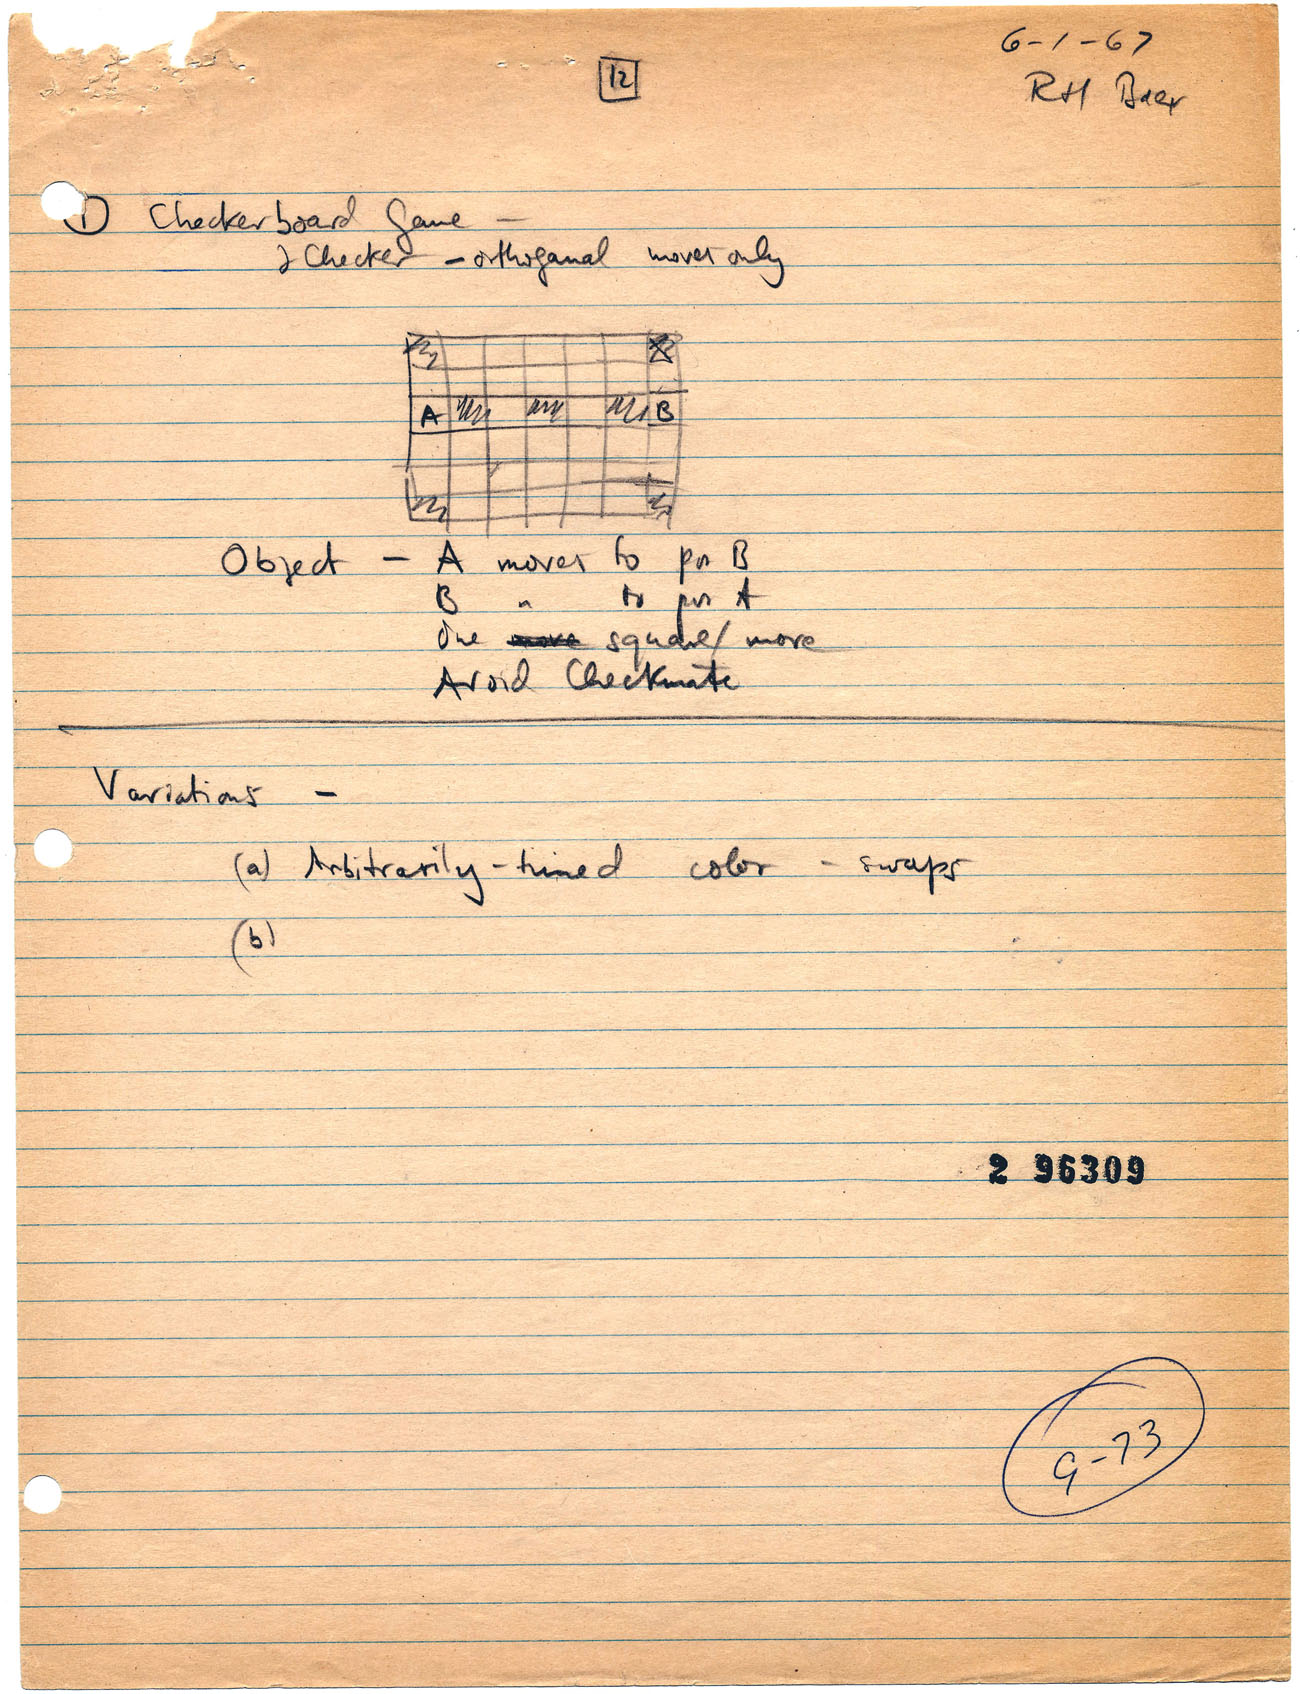 6-1-67
12
RH Baer
1 Checkerboard Game —
2 Checker — orthoganal moves only
A B
Object — A moves to pos B
B " to pos A
One move square/move
Avoid Checkmate
Variations —
(a) Arbitrarily-timed color - swaps
(b)
2 96309
G-73